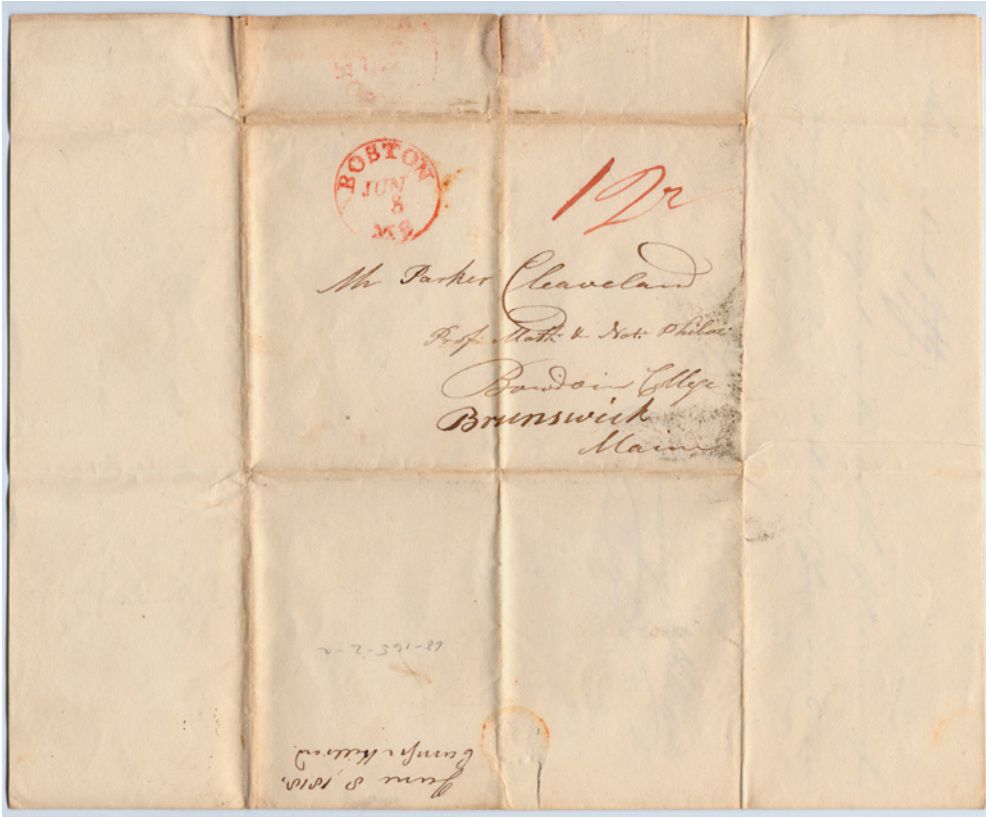 BOSTON
JUN
8
MS
12½
Mr Parker Cleaveland
Prof. Math. & Nat. Philos.
Bowdoin College
Brunswick
Maine
68-165-2-a
June 8, 1818.
Cumgs Hilliard